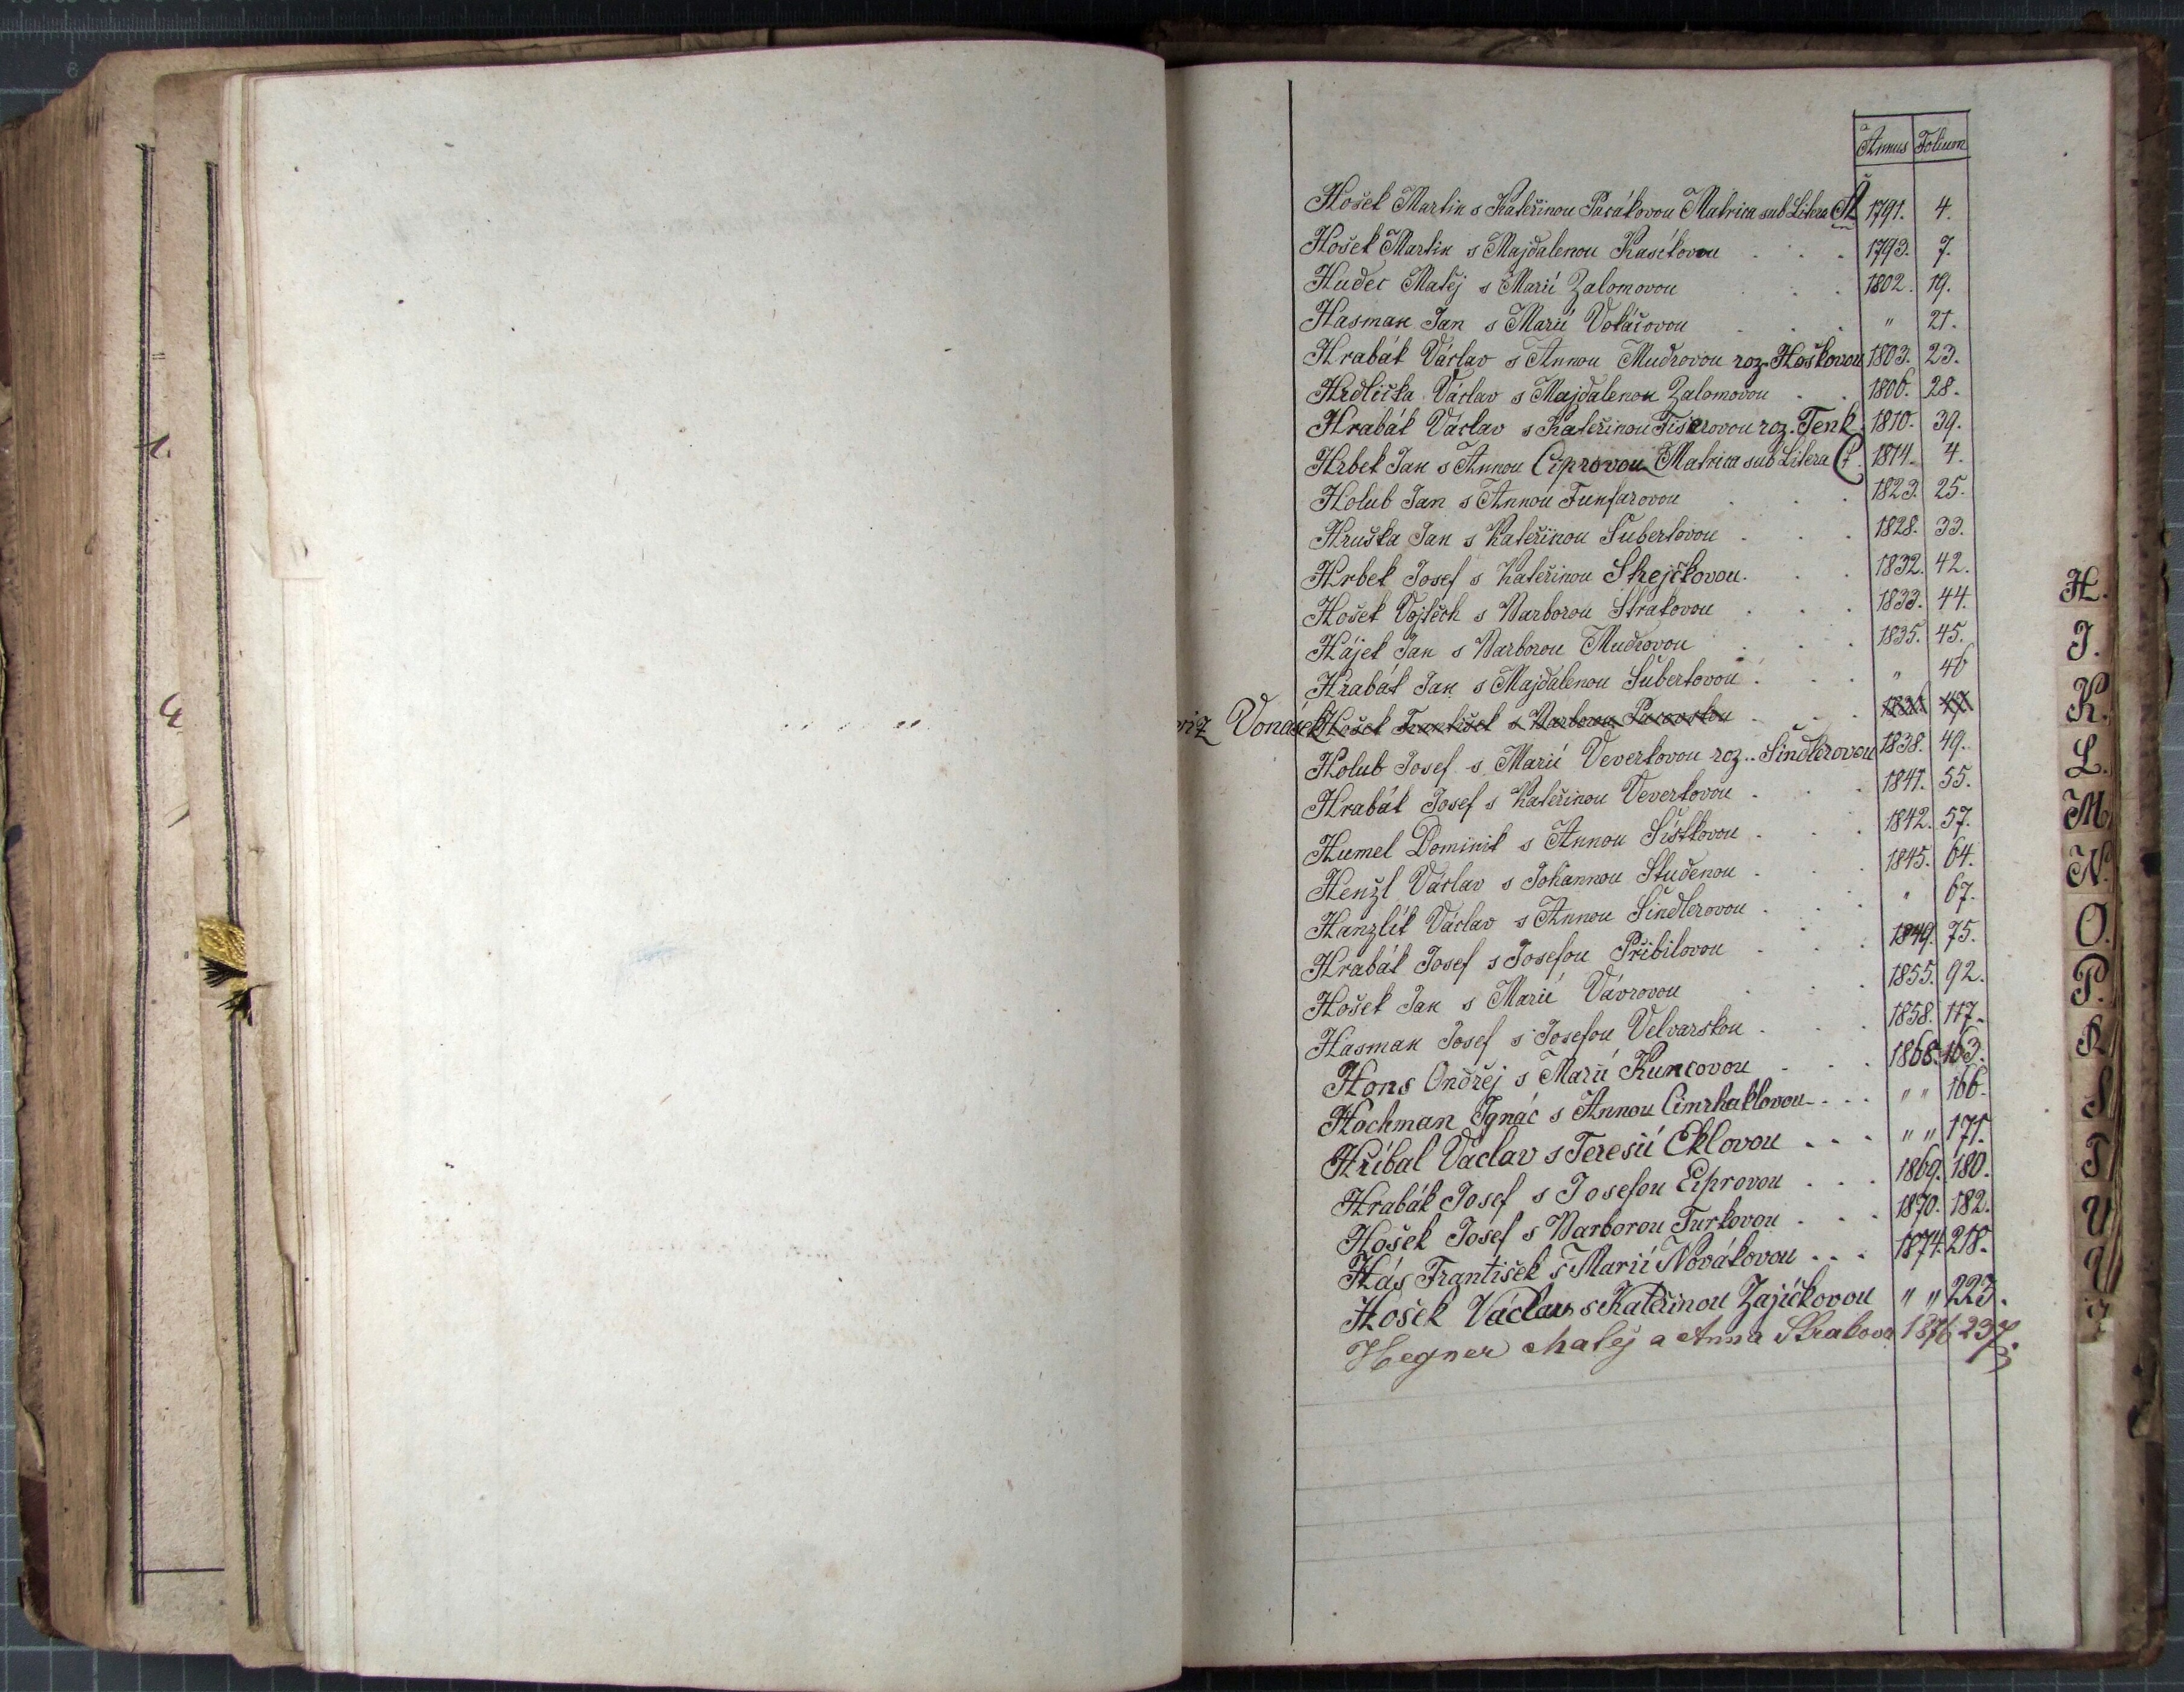 Annus Folium
Hošek Martin s Kateřinou Pacákovou Matrica sub Litera A 1791. 4.
Hošek Martin s Majdalenou Kasíkovou . . . 1793. 7.
Hudec Matěj s Marií Zalomovou . . 1802. 19.
Hasman Jan s Marií Vokáčovou . . . " 21.
Hrabák Václav s Annou Mudrovou roz. Hoškovou 1803. 23.
Hrdlička Václav s Majdalenou Zalomovou . . 1806. 28.
Hrabák Václav s Kateřinou Fišerovou roz. Tenk. 1810. 39.
Hrbek Jan s Annou Ciprovou Matrica sub Litera C. 1814. 4.
Holub Jan s Annou Funfarovou . . . 1823. 25.
Hruška Jan s Kateřinou Šubertovou . . . 1828. 33.
Hrbek Josef s Kateřinou Skejčkovou. . . 1832. 42.
Hošek Vojtěch s Barborou Strakovou . . . 1833. 44.
Hájek Jan s Barborou Mudrovou . . . 1835. 45.
Hrabák Jan s Majdalenou Šubertovou . . . " 46
viz Vonásek Hošek František s Barborou Pacovskou . . . 1836. 47.
Holub Josef s Marií Veverkovou roz. Šindlerovou 1838. 49.
Hrabák Josef s Kateřinou Veverkovou . . . 1841. 55.
Humel Dominik s Annou Šístkovou . . . 1842. 57.
Henzl Václav s Johannou Studenou . . . 1845. 64.
Hanzlík Václav s Annou Šindlerovou . . . " 67.
Hrabák Josef s Josefou Přibilovou . . . 1849. 75.
Hošek Jan s Marií Vávrovou . . . 1855. 92.
Hasman Josef s Josefou Velvarskou . . . 1858. 117.
Hons Ondřej s Marií Kuncovou . . . 1868. 163.
Hochman Ignác s Annou Cimrhaklovou . . . " " 166.
Hříbal Václav s Teresií Eklovou . . . " " 171.
Hrabák Josef s Josefou Ciprovou . . . 1869. 180.
Hošek Josef s Barborou Turkovou . . . 1870. 182.
Hás František s Marií Novákovou . . . 1874. 218.
Hošek Václav s Kateřinou Zajíčkovou " " 223.
Hegner Matěj a Anna Strakova 1876 237.
H.
J.
K.
L.
M.
N.
O.
P.
R
S
T
U
V
Z